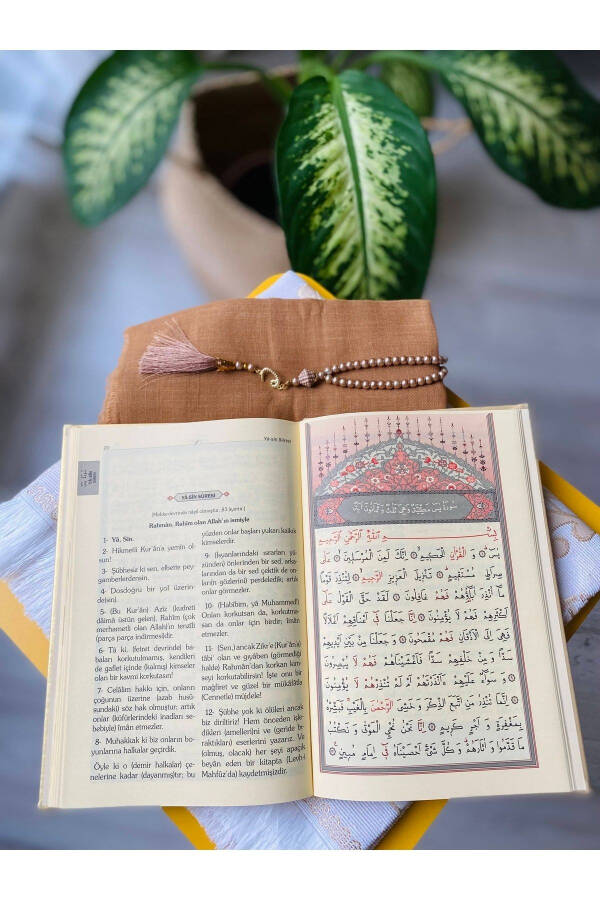 Yâ-sîn Sûresi
YÂ-SÎN SÛRESİ
Rahmân, Rahîm olan Allah'ın ismiyle
1- Yâ, Sîn.
2- Hikmetli Kur'ân'a yemin ol-
sun!
3- Şübhesiz ki sen, elbette pey-
gamberlerdensin.
4- Dosdoğru bir yol üzerin-
desin.
5- (Bu Kur'ân) Azîz (kudreti
dâimâ üstün gelen), Rahîm (çok
merhametli olan Allah)'ın tenzîli
(parça parça indirmesi)dir.
6- Tâ ki, fetret devrindel ba-
baları korkutulmamış, kendileri
de gaflet içinde (kalmış) kimseler
olan bir kavmi korkutasın!
7- Celâlim hakkı için, onların
çoğunun üzerine (azab husû-
sundaki) söz hak olmuştur; artık
onlar (küfürlerindeki inadları se-
bebiyle) îmân etmezler.
8- Muhakkak ki biz onların bo-
yunlarına halkalar geçirdik.
Öyle ki o (demir halkalar) çe-
nelerine kadar (dayanmıştır; bu
yüzden onlar başları yukarı kalkık
kimselerdir.
9- (İsyanlarındaki ısrarları yü-
zünden) önlerinden bir sed, arka-
larından da bir sed çektik de on-
ar(ın gözlerini) perdeledik; artık
onlar görmezler.
10- (Habîbim, yâ Muhammed!)
Onları korkutsan da, korkutma-
san da onlar için birdir; îmân
etmezler.
11- (Sen,) ancak Zikr'e (Kur'ân'a)
tâbi' olan ve gıyâben (görmediği
hâlde) Rahmân'dan korkan kim-
seyi korkutabilirsin! İşte onu bir
mağfiret ve güzel bir mükâfâtla
(Cennetle) müjdele!
12- Şübhe yok ki ölüleri ancak
biz diriltiriz! Hem önceden işle-
dikleri (amelleri)ni ve (geride bı-
raktıkları) eserlerini yazarız. Ve
(olmuş, olacak) her şeyi apaçık
beyân eden bir kitapta (Levh-i
Mahfûz'da) kaydetmişizdir.
سُورَةُ يٰسٓ مَكِّيَّةٌ وَهِيَ ثَلَاثٌ وَثَمَانُونَ اٰيَةً
بِسْمِ اللّٰهِ الرَّحْمٰنِ الرَّحِيمِ
يٰسٓ ۞ وَالْقُرْاٰنِ الْحَكِيمِ ۞ اِنَّكَ لَمِنَ الْمُرْسَلِينَ ۞ عَلٰى
صِرَاطٍ مُسْتَقِيمٍ ۞ تَنْزِيلَ الْعَزِيزِ الرَّحِيمِ ۞ لِتُنْذِرَ قَوْمًا
مَٓا اُنْذِرَ اٰبَٓاؤُهُمْ فَهُمْ غَافِلُونَ ۞ لَقَدْ حَقَّ الْقَوْلُ عَلٰٓى
اَكْثَرِهِمْ فَهُمْ لَا يُؤْمِنُونَ ۞ اِنَّا جَعَلْنَا فِٓى اَعْنَاقِهِمْ اَغْلَالًا
فَهِىَ اِلَى الْاَذْقَانِ فَهُمْ مُقْمَحُونَ ۞ وَجَعَلْنَا مِنْ بَيْنِ اَيْدِيهِمْ
سَدًّا وَمِنْ خَلْفِهِمْ سَدًّا فَاَغْشَيْنَاهُمْ فَهُمْ لَا يُبْصِرُونَ
۞ وَسَوَٓاءٌ عَلَيْهِمْ ءَاَنْذَرْتَهُمْ اَمْ لَمْ تُنْذِرْهُمْ لَا يُؤْمِنُونَ
۞ اِنَّمَا تُنْذِرُ مَنِ اتَّبَعَ الذِّكْرَ وَخَشِىَ الرَّحْمٰنَ بِالْغَيْبِ فَبَشِّرْهُ
بِمَغْفِرَةٍ وَاَجْرٍ كَرِيمٍ ۞ اِنَّا نَحْنُ نُحْيِى الْمَوْتٰى وَنَكْتُبُ
مَا قَدَّمُوا وَاٰثَارَهُمْ وَكُلَّ شَىْءٍ اَحْصَيْنَاهُ فِٓى اِمَامٍ مُبِينٍ ۞